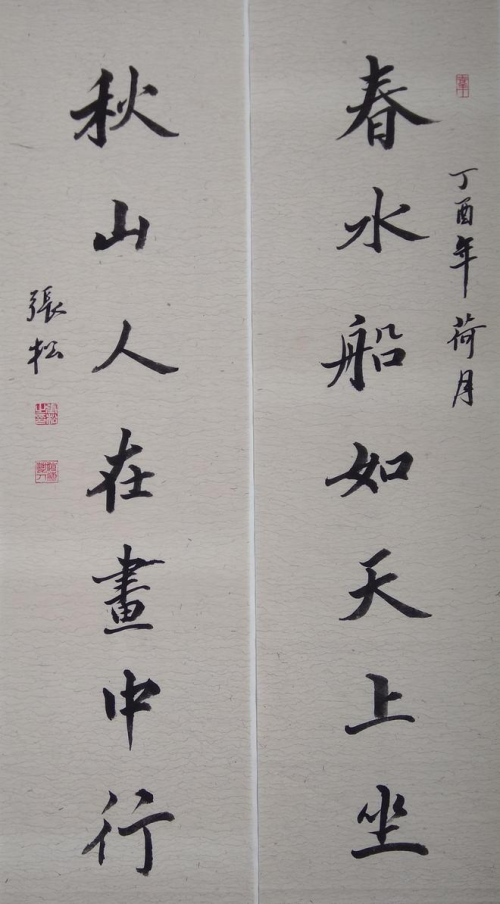 丁酉年荷月
春水船如天上坐
秋山人在畫中行
張松